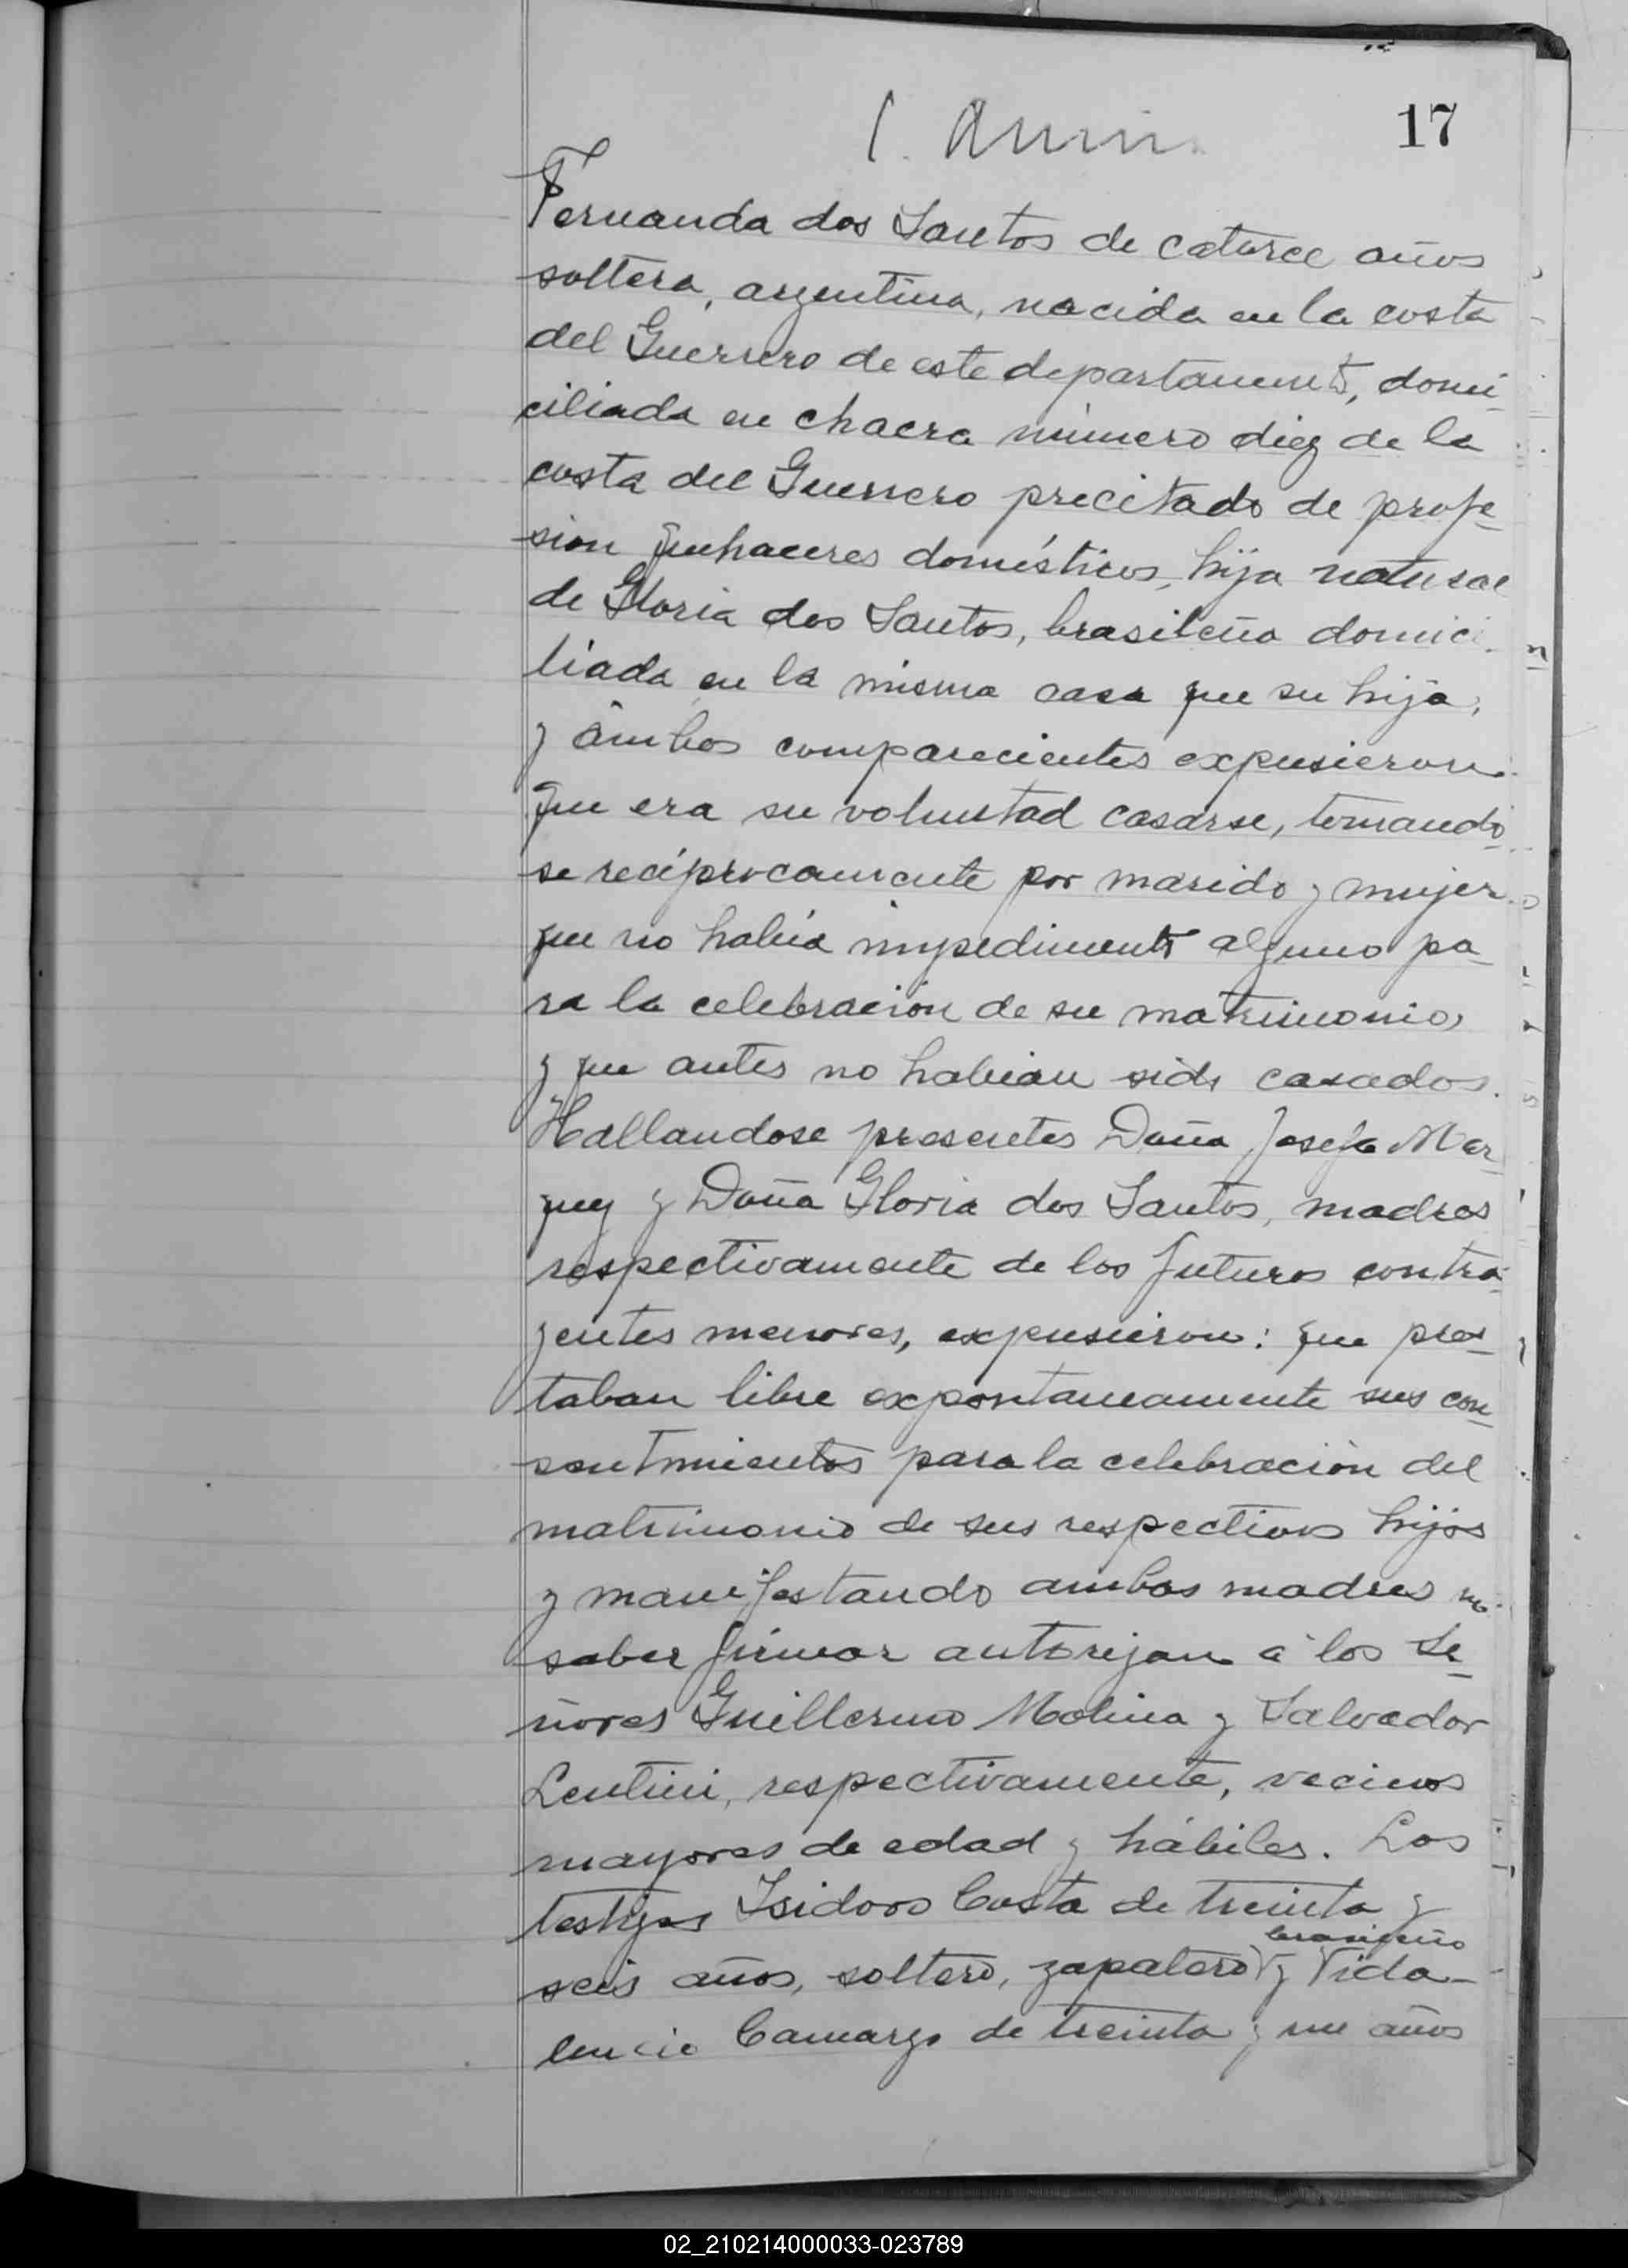 17
Fernanda dos Santos de catorce años
soltera, argentina, nacida en la costa
del Guerrero de este departamento, domi-
ciliada en chacra número diez de la
costa del Guerrero precitado de profe-
sion quehaceres domésticos, hija natural
de Gloria dos Santos, brasileña domici-
liada en la misma casa que su hija,
y ámbos comparecientes expusieron:
Que era su voluntad casarse, tomando
se recíprocamente por marido y mujer
que no había impedimento alguno pa-
ra la celebración de su matrimonio,
y que antes no habian sido casados.
Hallandose presentes Doña Josefa Mar-
quez y Doña Gloria dos Santos, madres
respectivamente de los futuros contra-
yentes menores, expusieron: que pres-
taban libre expontaneamente sus con-
sentimientos para la celebración del
matrimonio de sus respectivos hijos
y manifestando ambas madres no
saber firmar autorizan á los Se-
ñores Guillermo Molina y Salvador
Lentini, respectivamente, vecinos
mayores de edad y hábiles. Los
testigos Isidoro Costa de treinta y
brasileño
seis años, soltero, zapatero y Vida-
lencio Camargo de treinta y un años
02_210214000033-023789